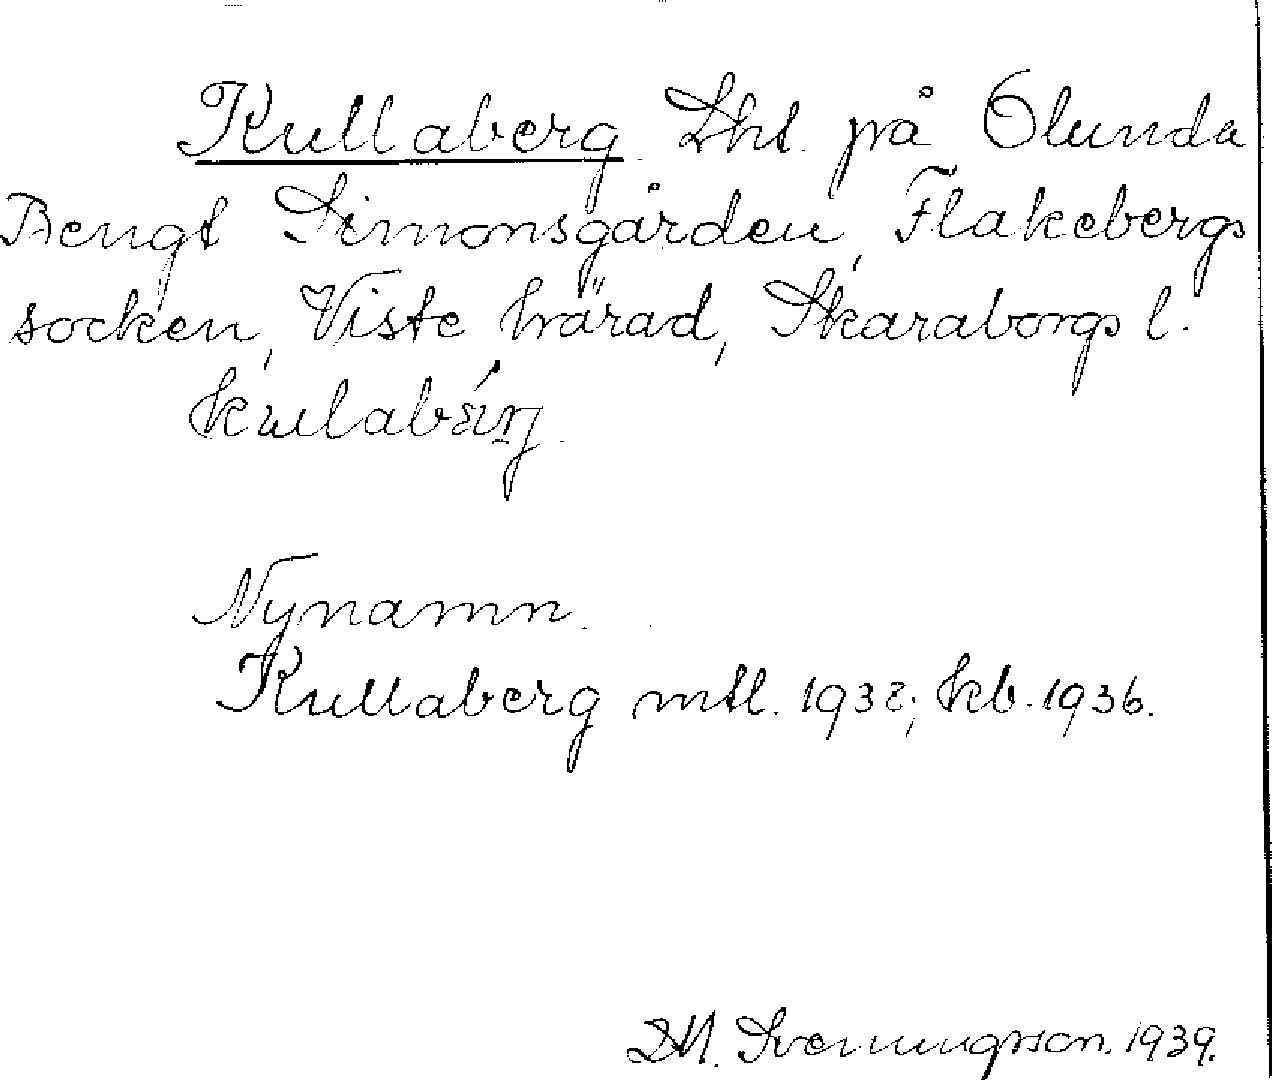 Kullaberg. Lht. på Olunda
Bengt Simonsgården, Flakebergs
socken, Viste härad, Skaraborgs l.
Nynamn.
Kullaberg mtl. 1938; kb. 1936.
D.M. Svenungsson. 1939.